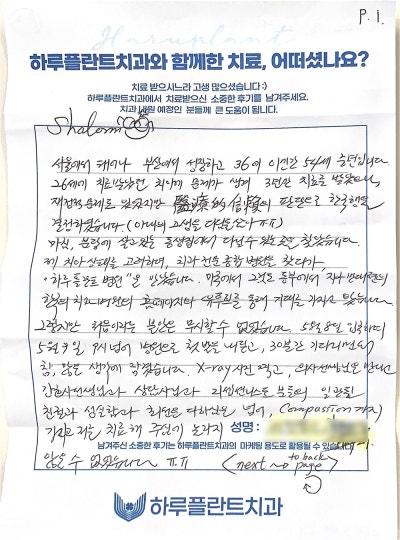 P. 1.
Haruplant
하루플란트치과와 함께한 치료, 어떠셨나요?
치료 받으시느라 고생 많으셨습니다 :)
하루플란트치과에서 치료받으신 소중한 후기를 남겨주세요.
치과 내원 예정인 분들께 큰 도움이 됩니다.
Shalom
서울에서 태어나 부산에서 성장하고 36에 이민간 54세 중년입니다
26세 치료받았던 치아에 문제가 생겨 3년간 치료를 받았으나,
판단으로 한국행을
결정하였습니다. (아내의 고생은 다 ㅠㅠ)
마침, 분당에 살고있는 동생집에서 다닐수 있는곳을 찾았습니다.
제 치아 상태를 고려하며, 치과 전문 종합 병원을 찾다가
"하루 플란트 병원"을 만났습니다. 미국에서 그것도 동부에서 지구 반대편의
한국의 치과병원의 홈페이지와 유튜브를 통해 기대를 가지고 왔습니다
그렇지만 처음이라는 불안은 무시할수 없었습니다. 5월 8일 입국하여
5월 9일 9시 넘어 병원으로 첫 발을 내딛고, 30분간 기다리면서
참, 많은 생각이 들었습니다. X-ray 사진 찍고, 의사선생님을 만나고
간호사선생님과 상담사님과 리셉션니스트 분들의 일관된
친절과 성실함과 최선을 다하는것을 넘어, Compassion까지
가지고 저를 치료해 주심이 놀라지 성명 :
남겨주신 소중한 후기는 하루플란트치과의 마케팅 용도로 활용될 수 있습니다
않을 수 없었습니다 ㅠㅠ (next to back page)
하루플란트치과